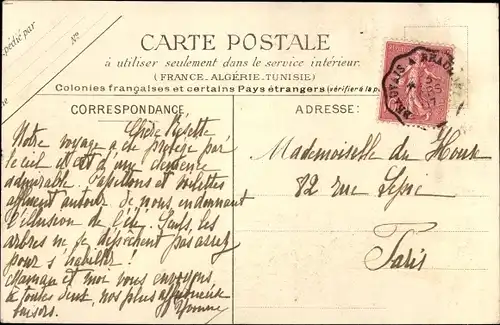 pédié par
No
CARTE POSTALE
à utiliser seulement dans le service intérieur.
(FRANCE_ALGÉRIE_TUNISIE)
Colonies françaises et certains Pays étrangers (vérifier à la p
CORRESPONDANCE
Chère
Notre voyage a été protégé par
le ciel il est d'une clémence
admirable. Papillons et voilettes
autour de nous en donnant
l'illusion de l'été. Seuls, les
arbres ne se dépêchent pas assez
pour s'habiller!
Maman et moi vous envoyons
à toutes deux, nos plus affectueux
baisers.
Yvonne
ADRESSE:
Mademoiselle du Houx
82 rue Lepic
Paris